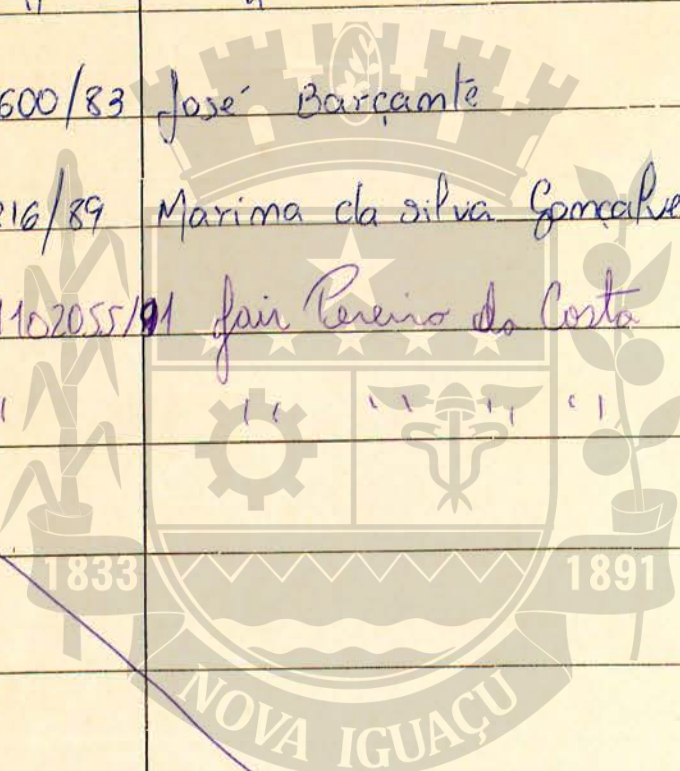 600/83 José Barçante
216/89 Marina da silva Gonçalve
1102055/91 Jair Pereira da Costa
" " " " "
1833 1891
NOVA IGUAÇU